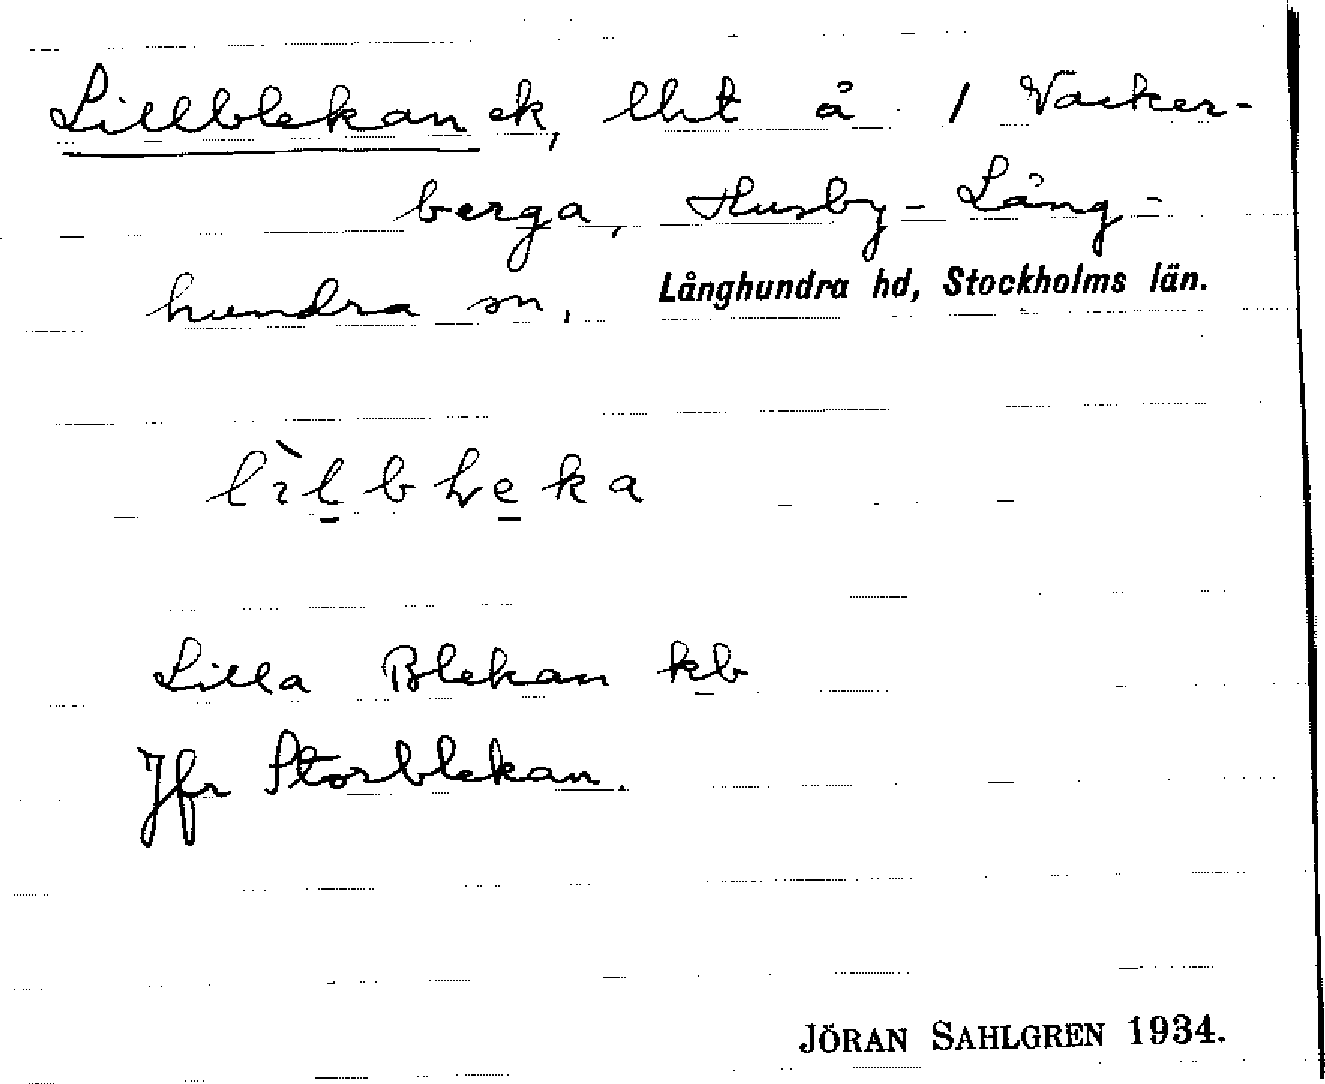 Lillblekan ek, lht å 1 Vacker-
berga, Husby-Lång-
hundra sn, Långhundra hd, Stockholms län.
Lilla Blekan kb
Jfr Storblekan.
JÖRAN SAHLGREN 1934.